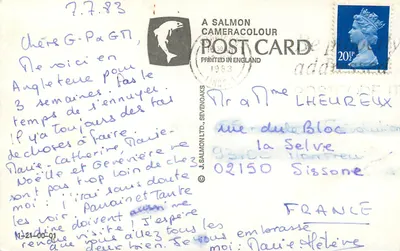 7.7.83
Chère G.P et GM,
Me voici en
Angleterre pour
3 semaines. Pas le
temps de s'ennuyer.
Il y a toujours des tas
de choses à faire.
Marie-Catherine, Marie-
Noëlle et Geneviève ne
sont pas trop loin de chez
moi : j'irai sans doute
les voir. Parrain et Tante
doivent aussi me
rendre visite ! J'espère
que vous allez tous les
deux bien. Je vous embrasse
moi : Marie-Hélène
11-21-00-01
A SALMON
CAMERACOLOUR
POST CARD
PRINTED IN ENGLAND
© J.SALMON LTD., SEVENOAKS
1983
20½P
Mr et Mme LHEUREUX
rue du Bloc
la Selve
02150 Sissone
FRANCE